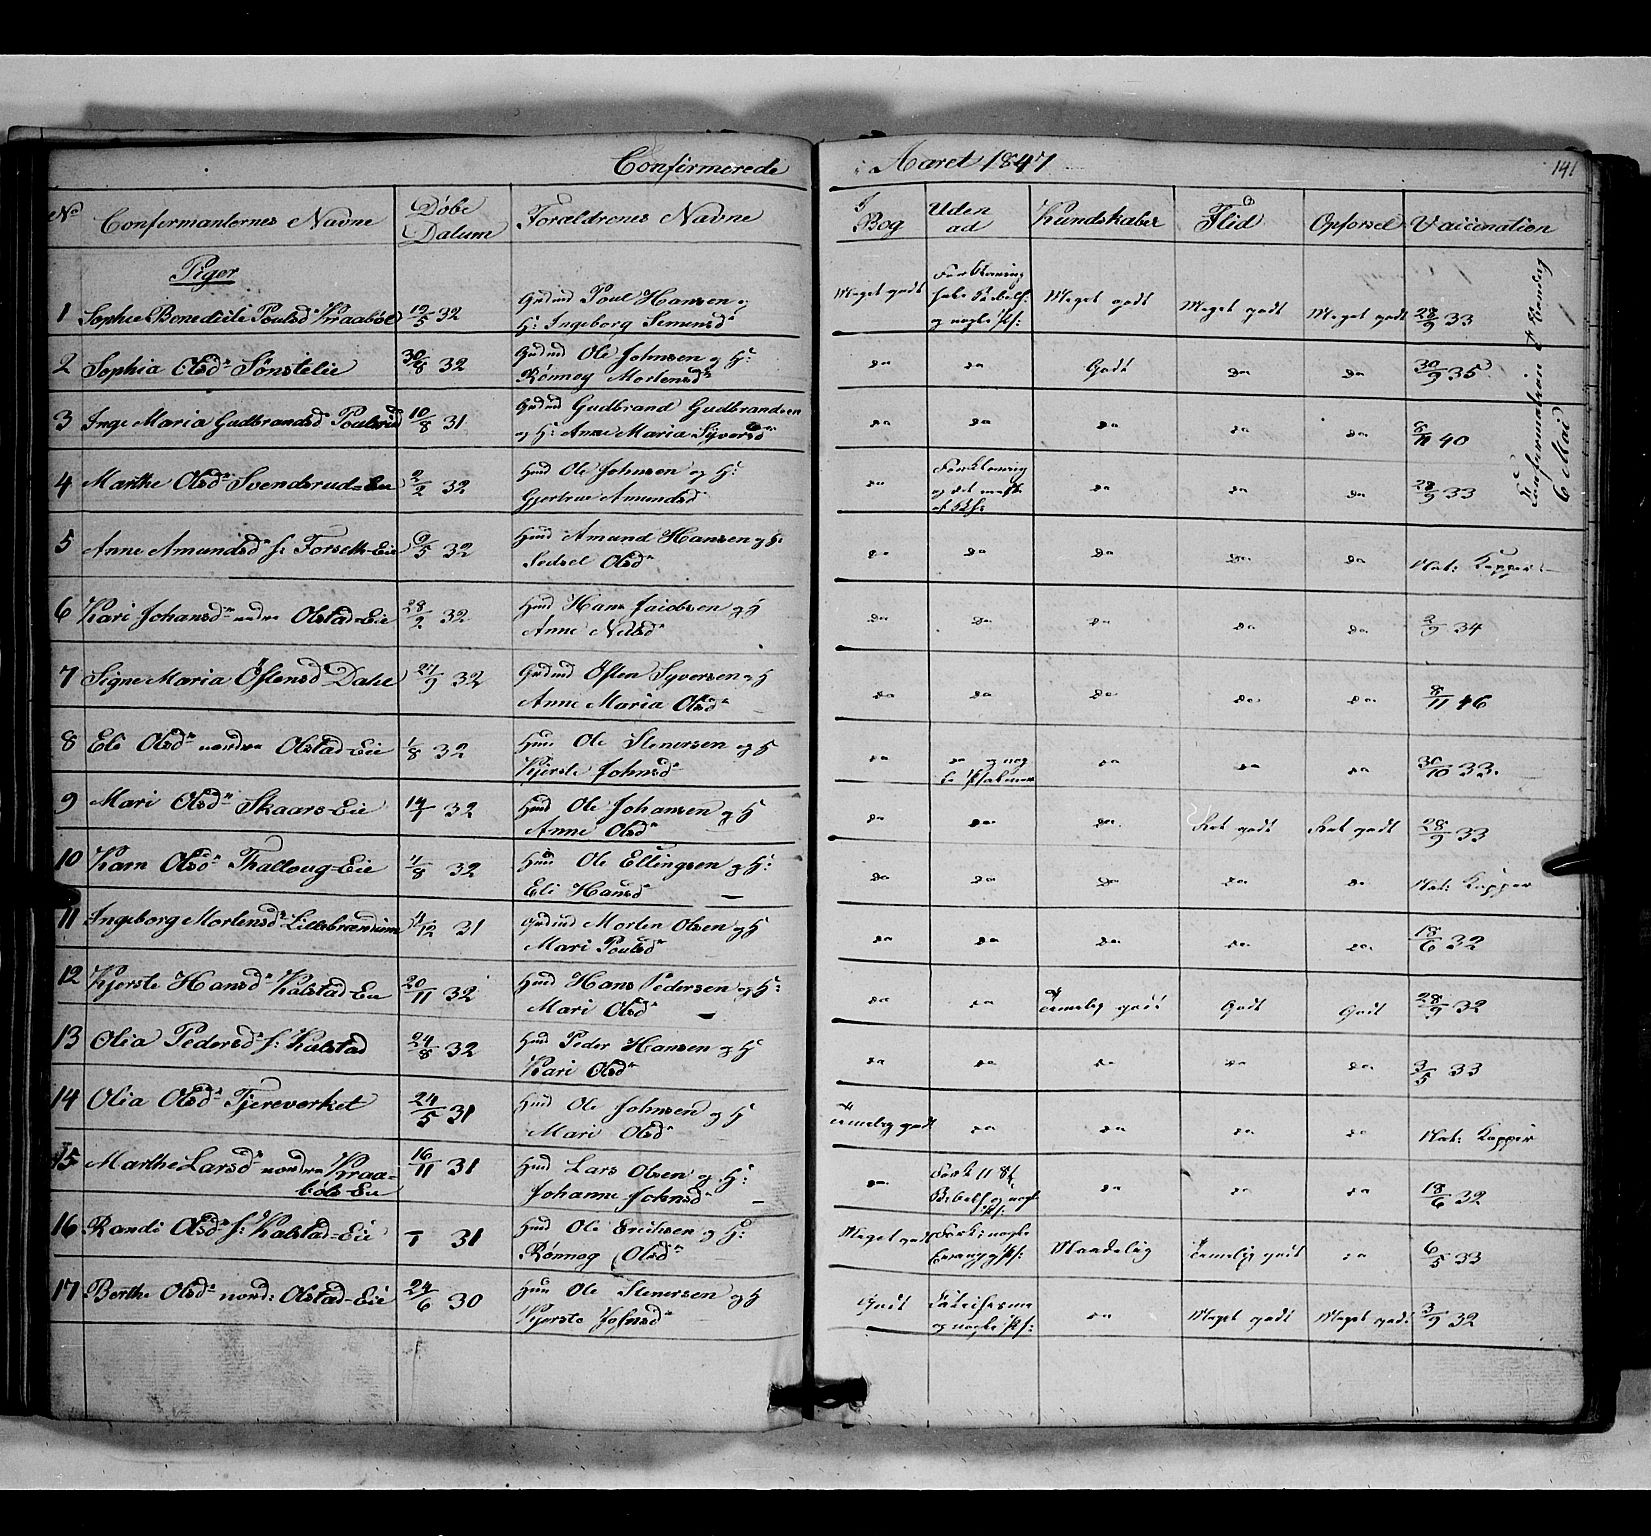 Confirmerede i Aaret 1847
141
No Confirmanternes Navne Døbe Datum Forældrenes Navne I Bog Uden ad Kundskaber Flid Opførsel Vaccination
Piger
1 Sophie Benedicte Poulsdr Kraabøl 12/5 32 Grdmd Poul Hansen og H: Ingeborg Simensdr Meget godt Forklaring og nogle Ps: Meget godt Meget godt Meget godt 28/9 33
2 Sophia Olsdr Sønstelie 30/8 32 Grdmd Ole Johnsen og H: Rønnog Mortensdr do do Godt do do 30/9 35
3 Inge Maria Gudbrandsd Poulsrud 10/8 31 Grdmd Gudbrand Gudbrandsen og H: Anne Maria Syversdr do do do do do 8/11 40
4 Marthe Olsdr Svendsrud-Eie 2/2 32 Hmd Ole Johnsen og H: Gjertrue Amundsdr do Forklaring og det meste af do do do 28/9 33
5 Anne Amundsdr s: Forseth-Eie 9/5 32 Hmd Amund Hansen og H: Sidsel Olsdr do do do do do Nat: Kopper
6 Kari Johansdr nedre Olstad-Eie 28/2 32 Hmd Hans Jacobsen og H Anne Nilsdr do do do do do 2/9 34
7 Signe Maria Østensdr Dahl 27/9 32 Grdmd Østen Syversen og H Anne Maria Olsdr do do do do do 8/11 46
8 Eli Olsdr nordre Olstad-Eie 1/8 32 Hmd Ole Stenersen og H Kjerste Johnsdr do do og nogle Psalmer do do do 30/10 33
9 Mari Olsdr Skaars-Eie 32 Hmd Ole Johansen og H Anne Olsdr do do do Ret godt Ret godt 28/9 33
10 Karn Olsdr Thalloug-Eie 4/8 32 Hmd Ole Ellingsen og H: Eli Hansdr do do do do do Nat: Kopper
11 Ingeborg Mortensdr Lillebrændum 4/12 31 Grdmd Morten Olsen og H Mari Poulsdr do do do do do 18/6 32
12 Kjerste Hansdr Kalstad-Eie 20/11 32 Hmd Hans Pedersen og H: Mari Olsdr do do Temelig godt Godt Godt 28/9 32
13 Olia Pedersdr s: Kalstad 24/8 32 Hmd Peder Hansen og H Kari Olsdr do do do do do 3/5 33
14 Olia Olsdr Tjereverket 24/5 31 Hmd Ole Johnsen og H Mari Olsdr Temelig godt do do do do Nat: Kopper
15 Marthe Larsdr nordre Kraabøls-Eie 16/11 31 Hmd Lars Olsen og H: Johanne Johnsdr do Fork og nogl Ps: do do do 18/6 32
16 Randi Olsdr s: Kalstad-Eie 31 Hmd Ole Erichsen og H: Rønnog Olsdr Meget godt Fork: nogle Evang og Ps: Maadelig Temelig godt do 6/5 33
17 Berthe Olsdr nord: Olstad-Eie 24/6 30 Hmd Ole Stenersen og H Kjerste Johnsdr Godt og nogle Ps: do Meget godt Meget godt 3/9 32
Confirmation
6 Mai